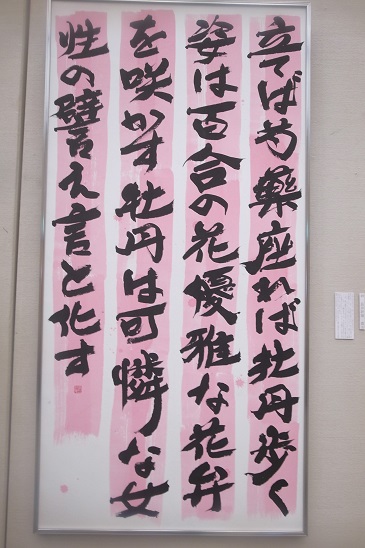 立てば芍藥座れば牡丹歩く
姿は百合の花優雅な花弁
を咲かす牡丹は可憐な女
性の譬え言と化す